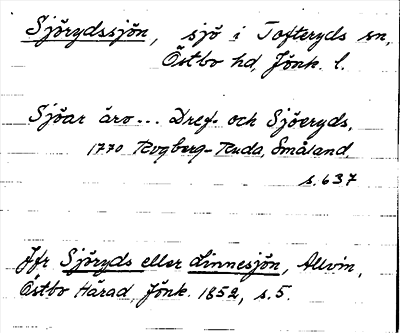 Sjörydssjön, sjö i Tofteryds sn,
Östbo hd, Jönk. l.
Sjöar äro... Dref- och Sjöeryds,
1770 Rogberg-Ruda, Småland,
s. 637
Jfr Sjöryds eller Linnesjön, Allvin,
Östbo Härad Jönk. 1852, s. 5.